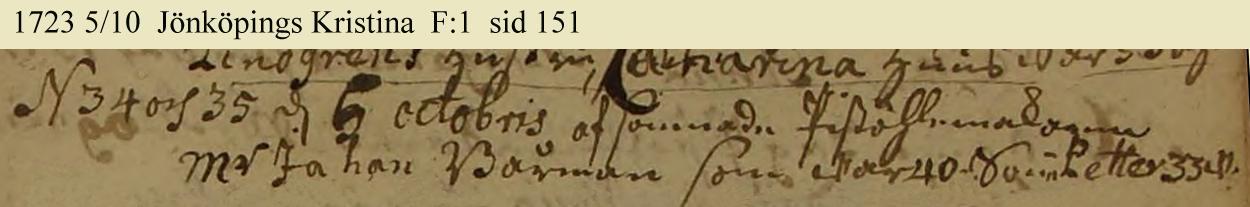 1723 5/10 Jönköpings Kristina F:1 sid 151
Lindgrens hustru, Catharina
N 34 och 35 d 5 octobris afsomnade Pistohlemakaren
Mr Jahan Bårman som war 40